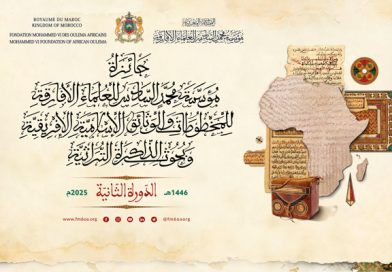 ROYAUME DU MAROC
KINGDOM OF MOROCCO
FONDATION MOHAMMED VI DES OULEMA AFRICAINS
MOHAMMED VI FOUNDATION OF AFRICAN OULEMA
المملكة المغربية
مؤسسة محمد السادس للعلماء الأفارقة
جائزة
مؤسسة محمد السادس للعلماء الأفارقة
للمخطوطات والوثائق الإسلامية الإفريقية
وبحوث الذاكرة التراثية
الدورة الثانية
1446هـ
2025م
www.fm6oa.org
@fm6oa.org